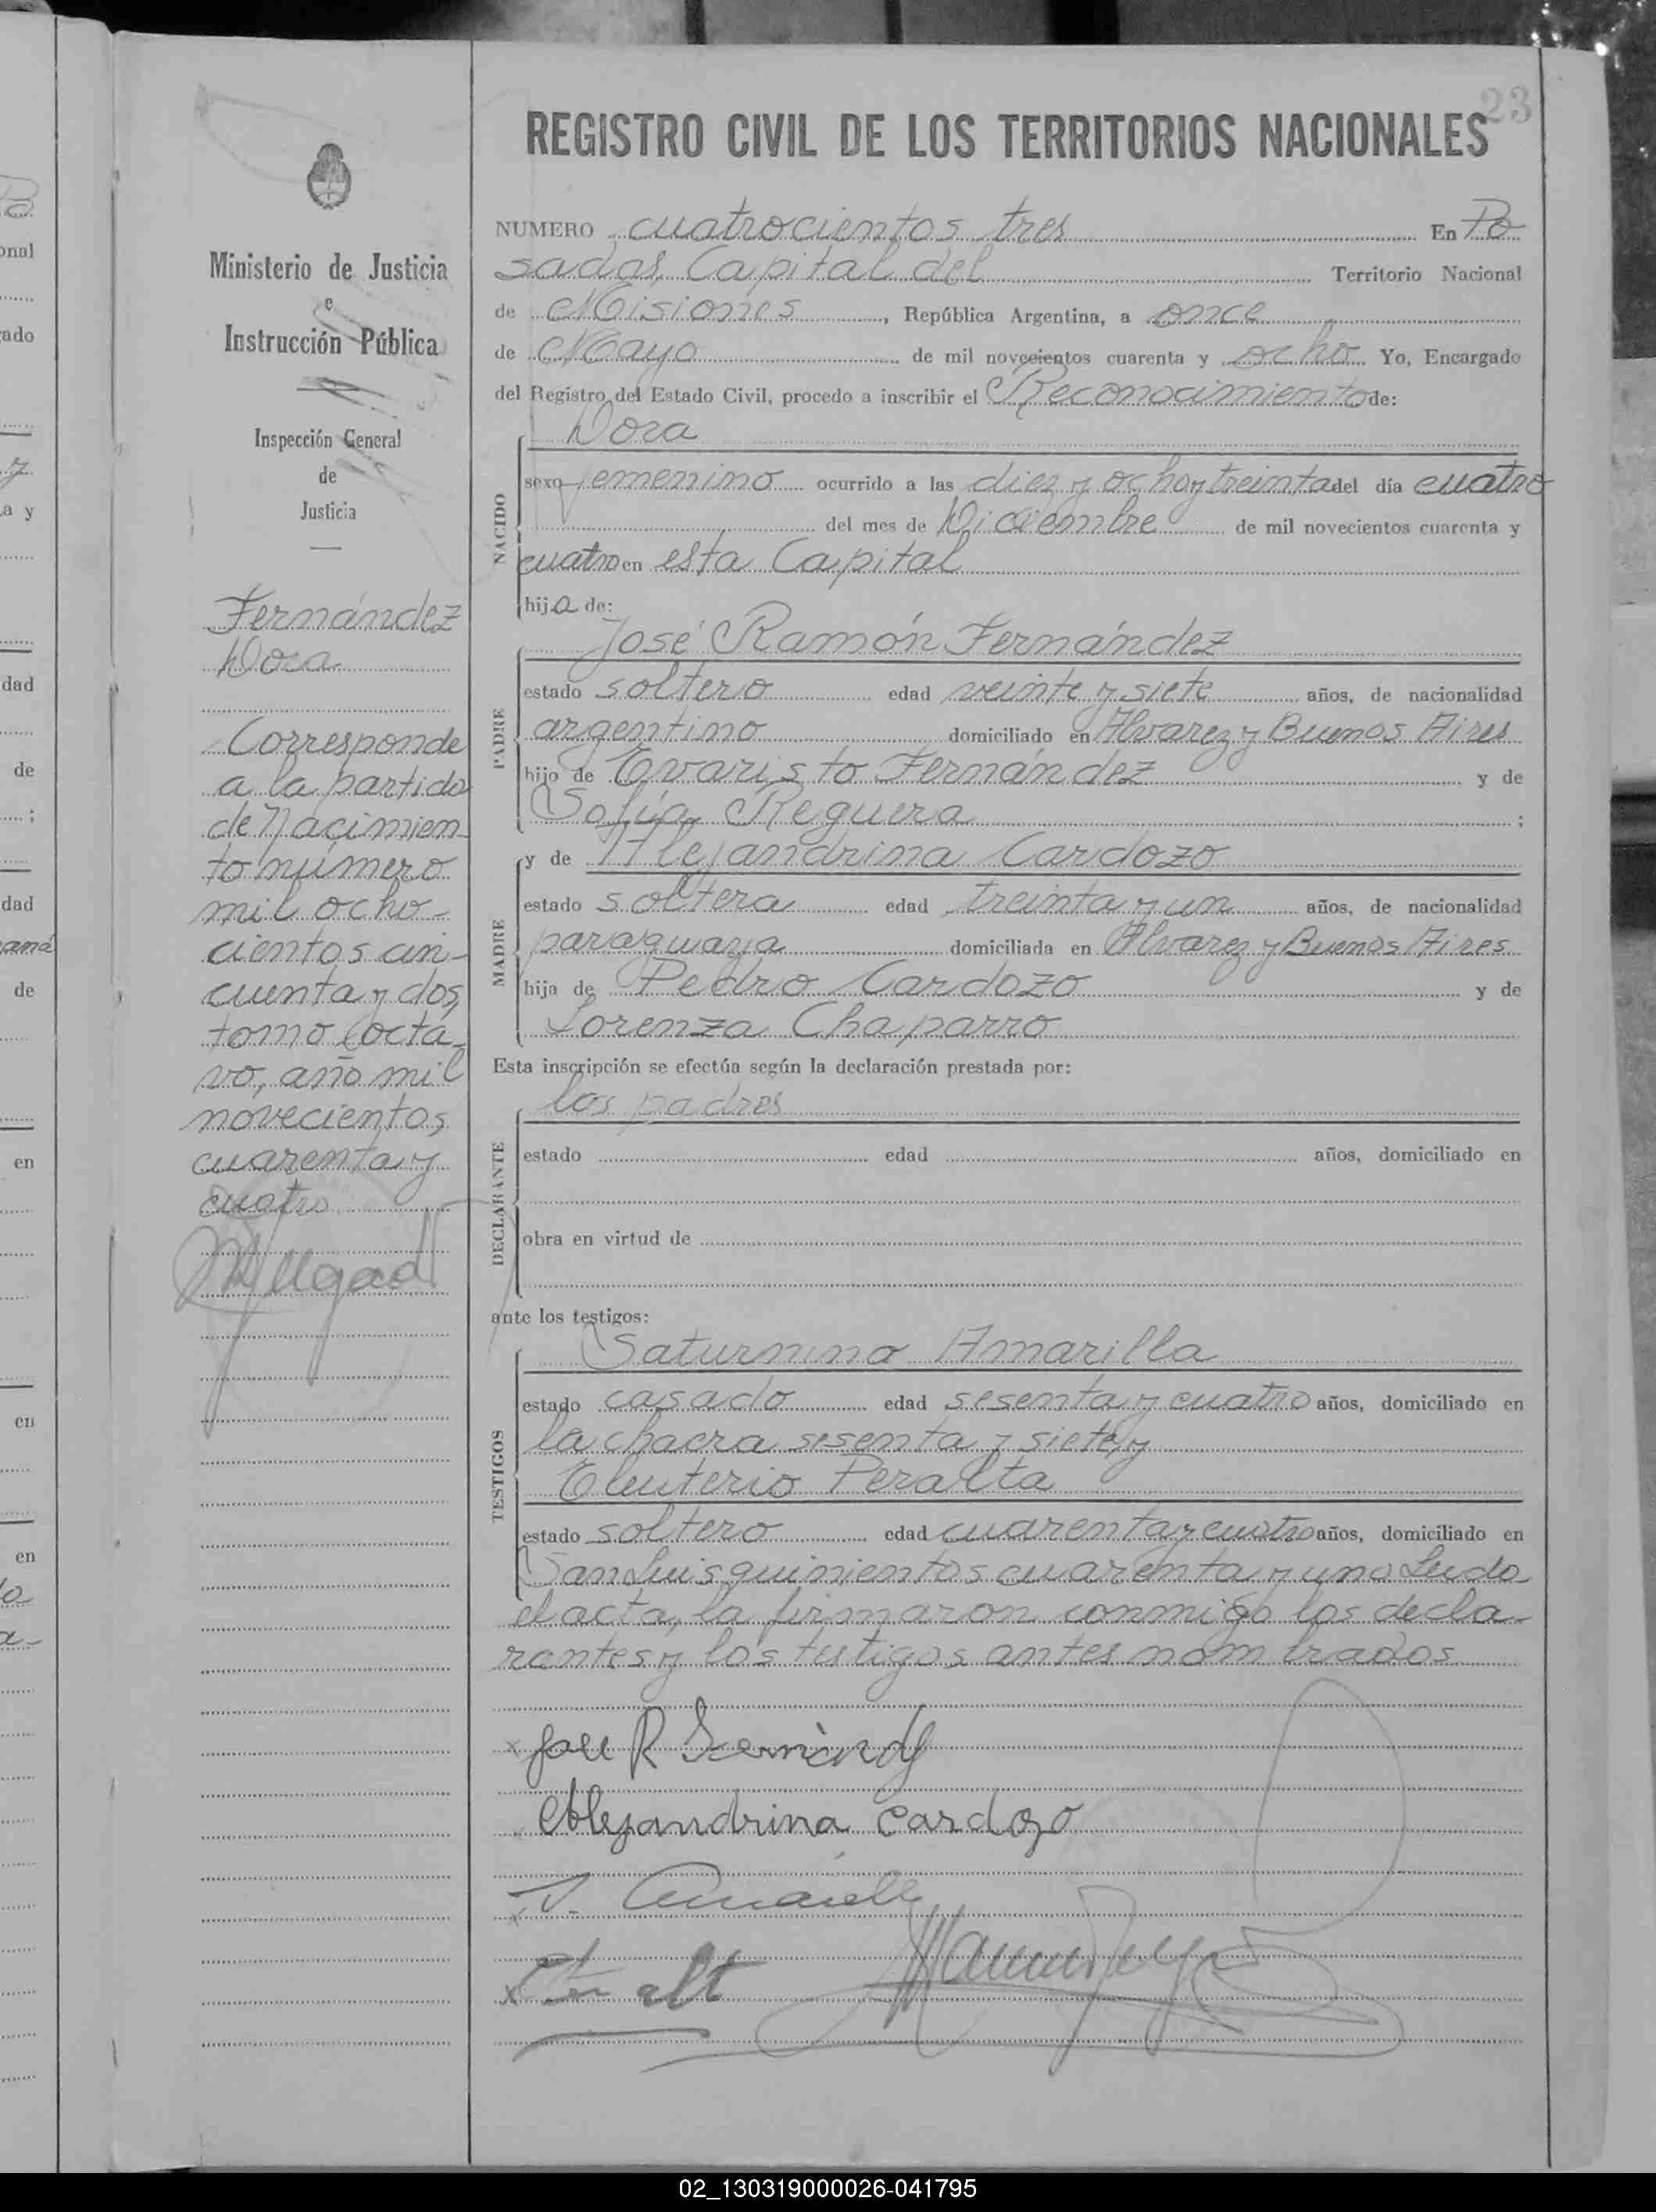 23
REGISTRO CIVIL DE LOS TERRITORIOS NACIONALES
Ministerio de Justicia
e
Instrucción Pública
Inspección General
de
Justicia
Fernández
Dora
Corresponde
a la partida
de Nacimien-
to número
mil ocho-
cientos cin-
cuenta y dos,
tomo octa-
vo, año mil
novecientos
cuarenta y
cuatro
NUMERO cuatrocientos tres En Po
sadas, Capital del Territorio Nacional
de Misiones, República Argentina, a once
de Mayo de mil novecientos cuarenta y ocho Yo, Encargado
del Registro del Estado Civil, procedo a inscribir el Reconocimiento de:
NACIDO
Dora
sexo femenino ocurrido a las diez y ocho y treinta del día cuatro
del mes de Diciembre de mil novecientos cuarenta y
cuatro en esta Capital
hija de:
PADRE
José Ramón Fernández
estado soltero edad veinte y siete años, de nacionalidad
argentino domiciliado en Alvarez y Buenos Aires
hijo de Evaristo Fernández y de
Sofía Reguera ;
MADRE
y de Alejandrina Cardozo
estado soltera edad treinta y un años, de nacionalidad
paraguaya domiciliada en Alvarez y Buenos Aires
hija de Pedro Cardozo y de
Lorenza Chaparro
Esta inscripción se efectúa según la declaración prestada por:
DECLARANTE
los padres
estado edad años, domiciliado en
obra en virtud de
ante los testigos:
TESTIGOS
Saturnino Amarilla
estado casado edad sesenta y cuatro años, domiciliado en
la chacra sesenta y siete, y
Eleuterio Peralta
estado soltero edad cuarenta y cuatro años, domiciliado en
San Luis quinientos cuarenta y uno Leida
el acta, la firmaron conmigo los decla-
rantes y los testigos antes nombrados
x José R Fernández
Alejandrina Cardozo
02_130319000026-041795